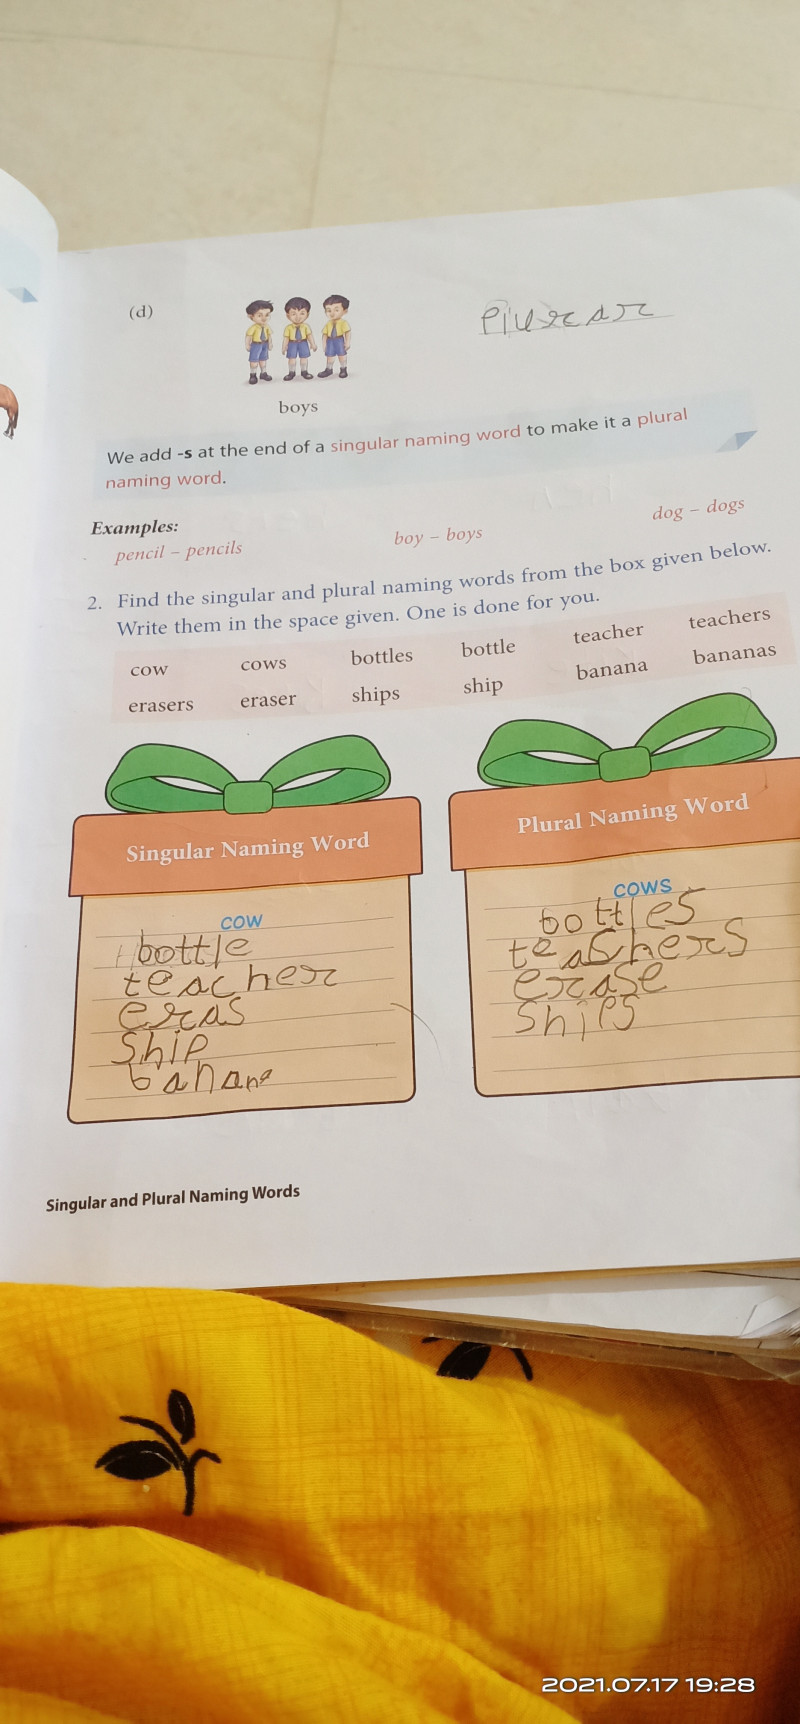 (d)
Plurar
boys
We add -s at the end of a singular naming word to make it a plural
naming word.
Examples:
pencil – pencils boy – boys dog – dogs
2. Find the singular and plural naming words from the box given below.
Write them in the space given. One is done for you.
cow cows bottles bottle teacher teachers
erasers eraser ships ship banana bananas
Singular Naming Word
cow
bottle
teacher
eras
Ship
banana
Plural Naming Word
cows
bottles
teachers
erase
Ships
Singular and Plural Naming Words
2021.07.17 19:28